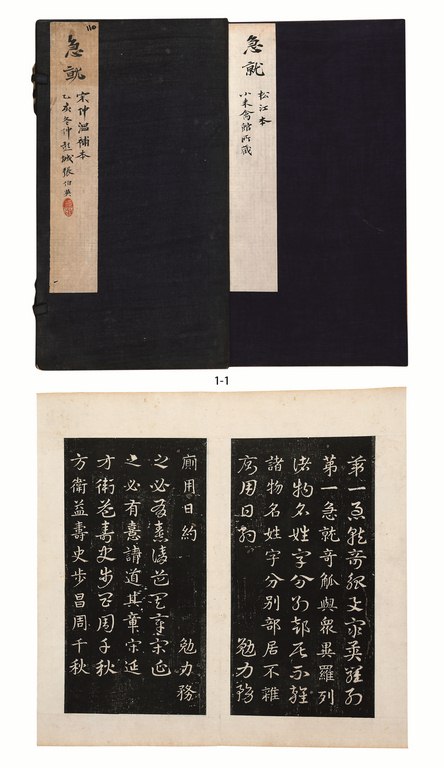 110
急就
宋仲温補本
乙亥冬仲彭城張伯英
急就
松江本
小來禽館所藏
1-1
第一急就奇觚與衆異羅列
第一急就奇觚與衆異羅列
諸物名姓字分別部居不雜
諸物名姓字分別部居不雜
廁用日約 勉力務
廁用日約 勉力務
之必有憙請道其章宋延
之必有憙請道其章宋延
方衛益壽史步昌周千秋
方衛益壽史步昌周千秋